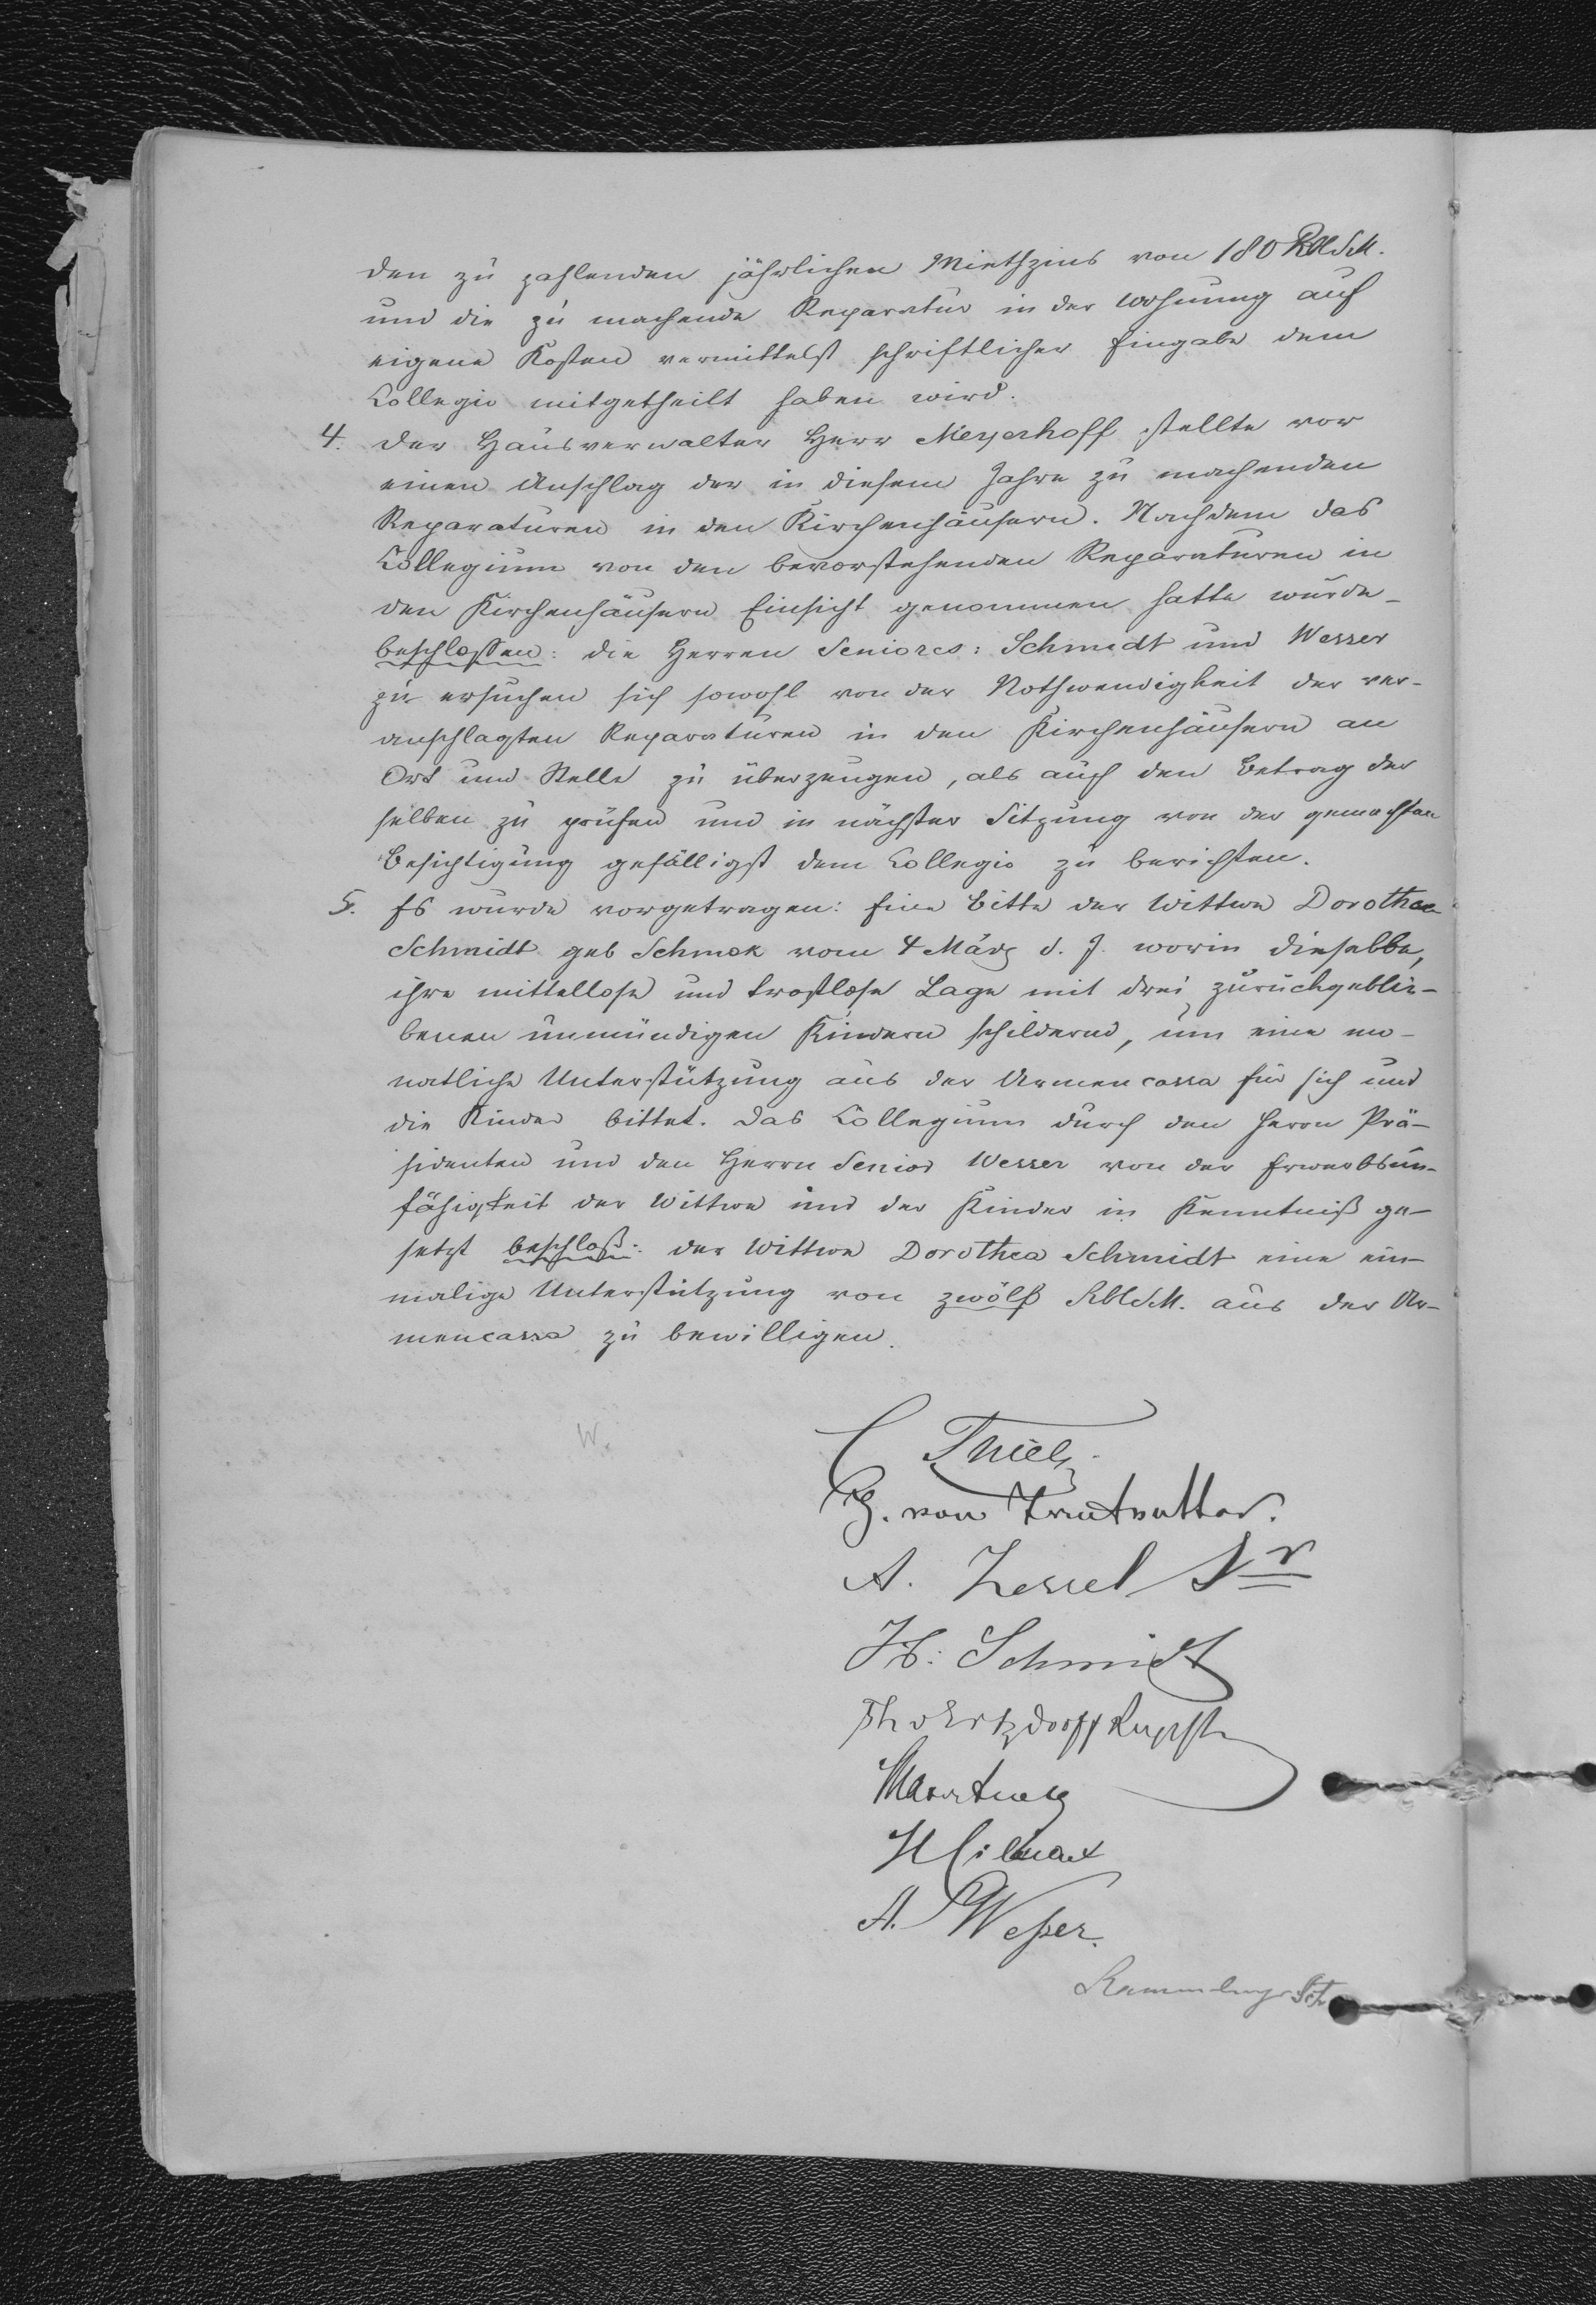 den zu zahlenden jährlichen Miethzins von 180 Rbl S.M.
und die zu machende Reparatur in der Wohnung auf
eigene Kosten vermittelst schriftlicher Eingabe dem
Collegio mitgetheilt haben wird.
4. Der Hausverwalter Herr Meyerhoff stellte vor
einen Anschlag der in diesem Jahre zu machenden
Reparaturen in den Kirchenhäusern. Nachdem das
Collegium von den bevorstehenden Reparaturen in
den Kirchenhäusern Einsicht genommen hatte wurde
beschlossen: die Herren Seniores: Schmidt und Wesser
zu ersuchen sich sowohl von der Nothwendigkeit der ver-
anschlagten Reparaturen in den Kirchenhäusern an
Ort und Stelle zu überzeugen, als auch den Betrag der
selben zu prüfen und in nächster Sitzung von der gemachten
Besichtigung gefälligst dem Collegio zu berichten.
5. Es wurde vorgetragen: Eine Bitte der Wittwe Dorothea
Schmidt geb Schmok vom 4 März d. J. worin dieselbe,
ihre mittellose und trostlose Lage mit drei zurückgeblie-
benen unmündigen Kindern schildernd, um eine mo-
natliche Unterstützung aus der Armencassa für sich und
die Kinder bittet. Das Collegium durch den Herrn Prä-
sidenten und den Herrn Senior Wesser von der Erwerbsun-
fähigkeit der Wittwe und der Kinder in Kenntniß ge-
setzt beschloß: der Wittwe Dorothea Schmidt eine ein-
malige Unterstützung von zwölf Rbl S.M. aus der Ar-
mencassa zu bewilligen.
W.
C Thiel
von
A. Zessel Sr
H. Schmidt
A. Weßer.